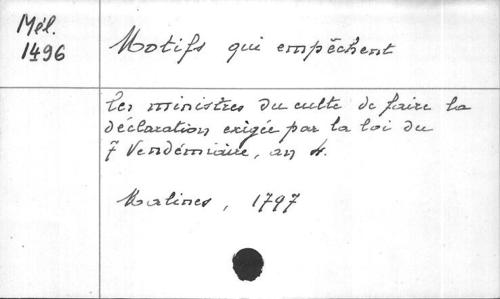 Mél.
1496
Motifs qui empêchent
les ministres du culte de faire la
déclaration exigée par la loi du
7 Vendémiaire, an 4.
Malines, 1797